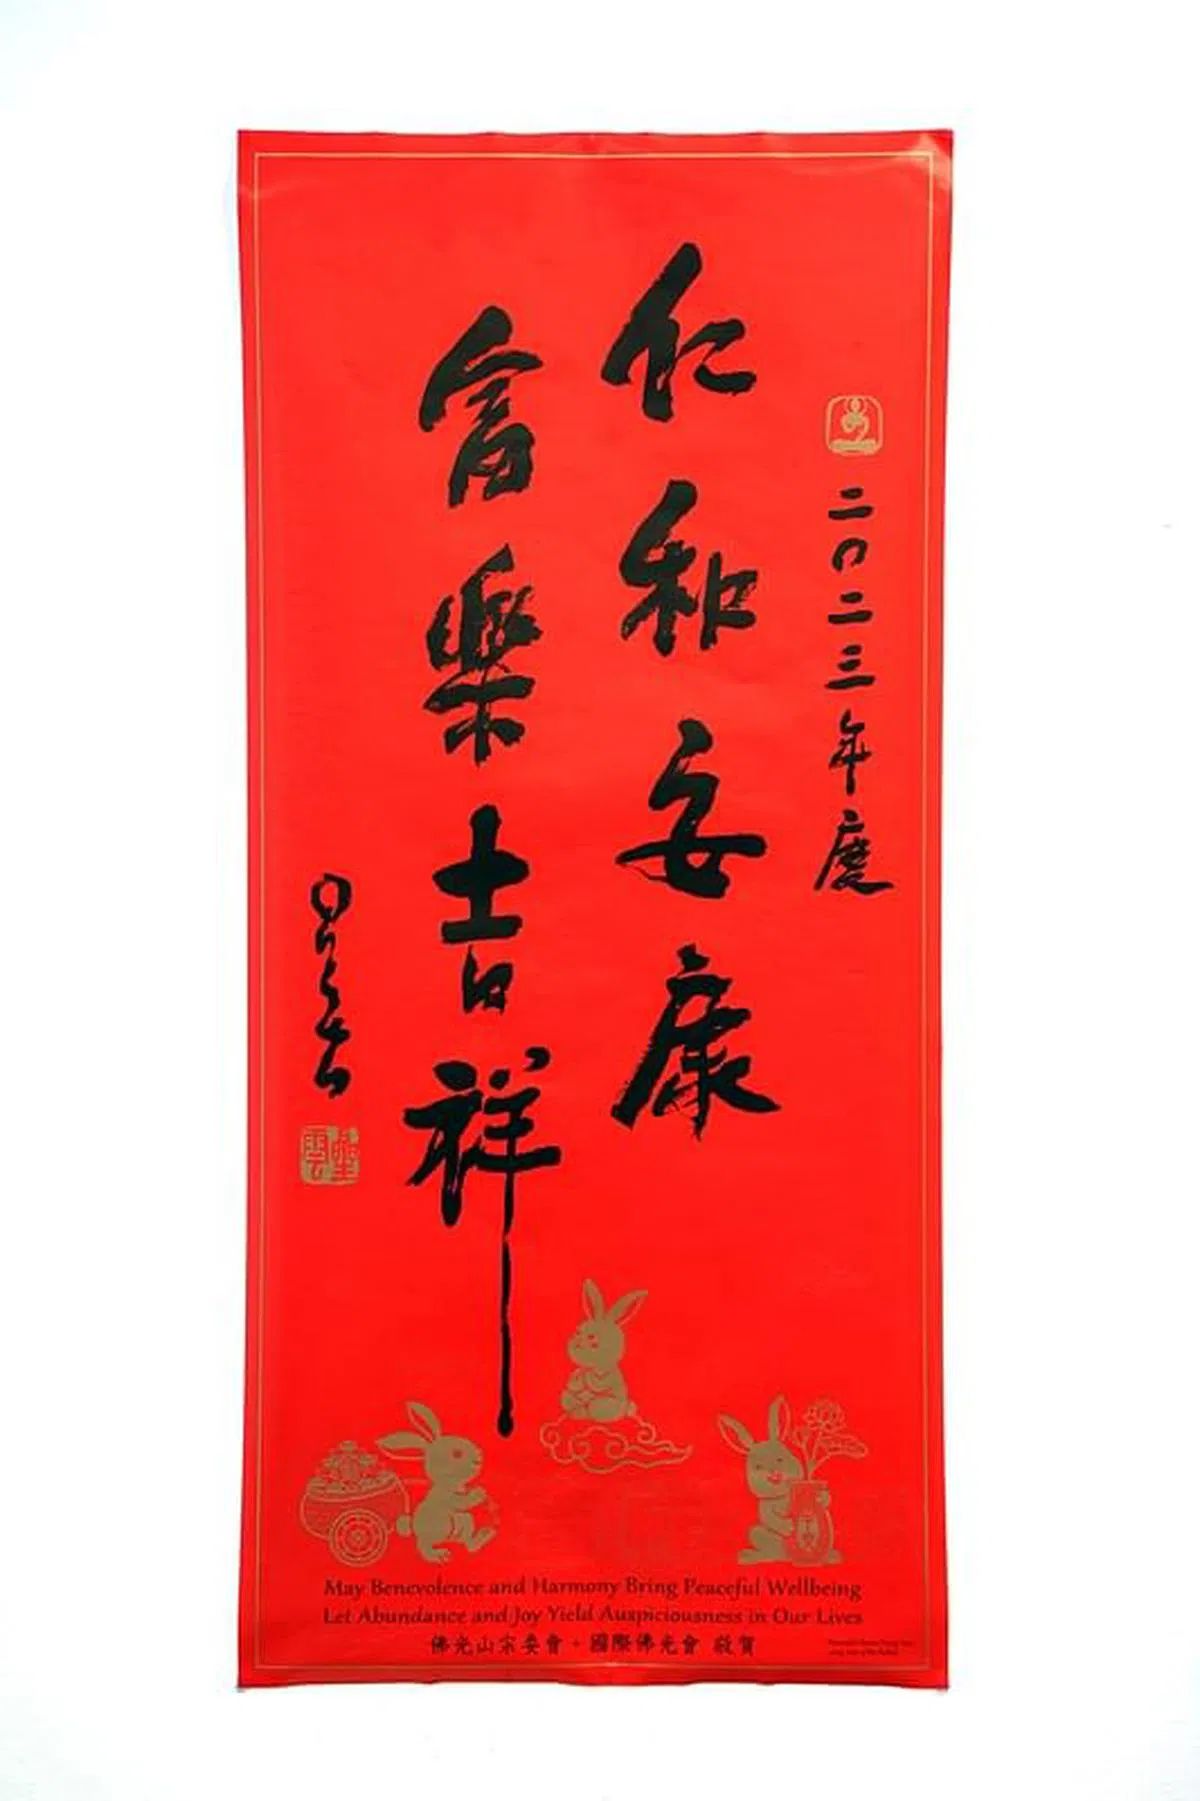 二〇二三年度
仁和安康
富樂吉祥
星雲
May Benevolence and Harmony Bring Peaceful Wellbeing
Let Abundance and Joy Yield Auspiciousness in Our Lives
佛光山宗委會・國際佛光會 敬賀